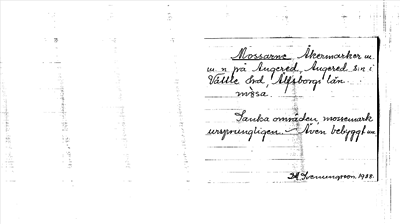 Mossarne, Åkermarker m.
m. n på Angered, Angered sn i
Vättle hd, Älfsborgs län.
mòsa.
Sanka områden, mossemark
ursprungligen. Även bebyggt
1938.